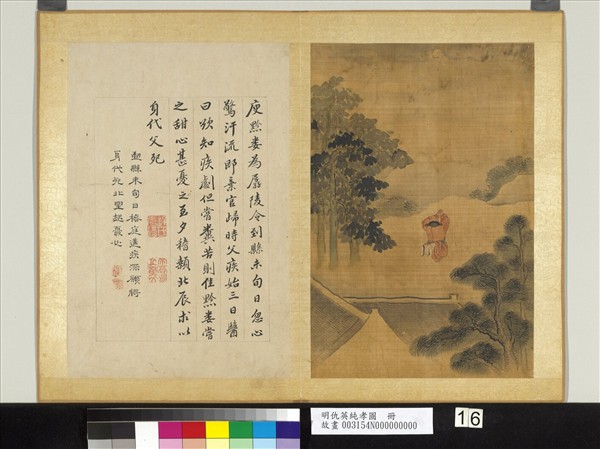 庾黔婁為孱陵令到縣未旬日忽心
驚汗流即棄官歸時父疾始三日醫
曰欲知疾劇但嘗糞苦則佳黔婁嘗
之甜心甚憂之至夕稽顙北辰求以
身代父死
到縣未旬日椿庭遺疾深願將
身代死北望起憂心
明仇英純孝圖 冊
故畫 003154N000000000
16